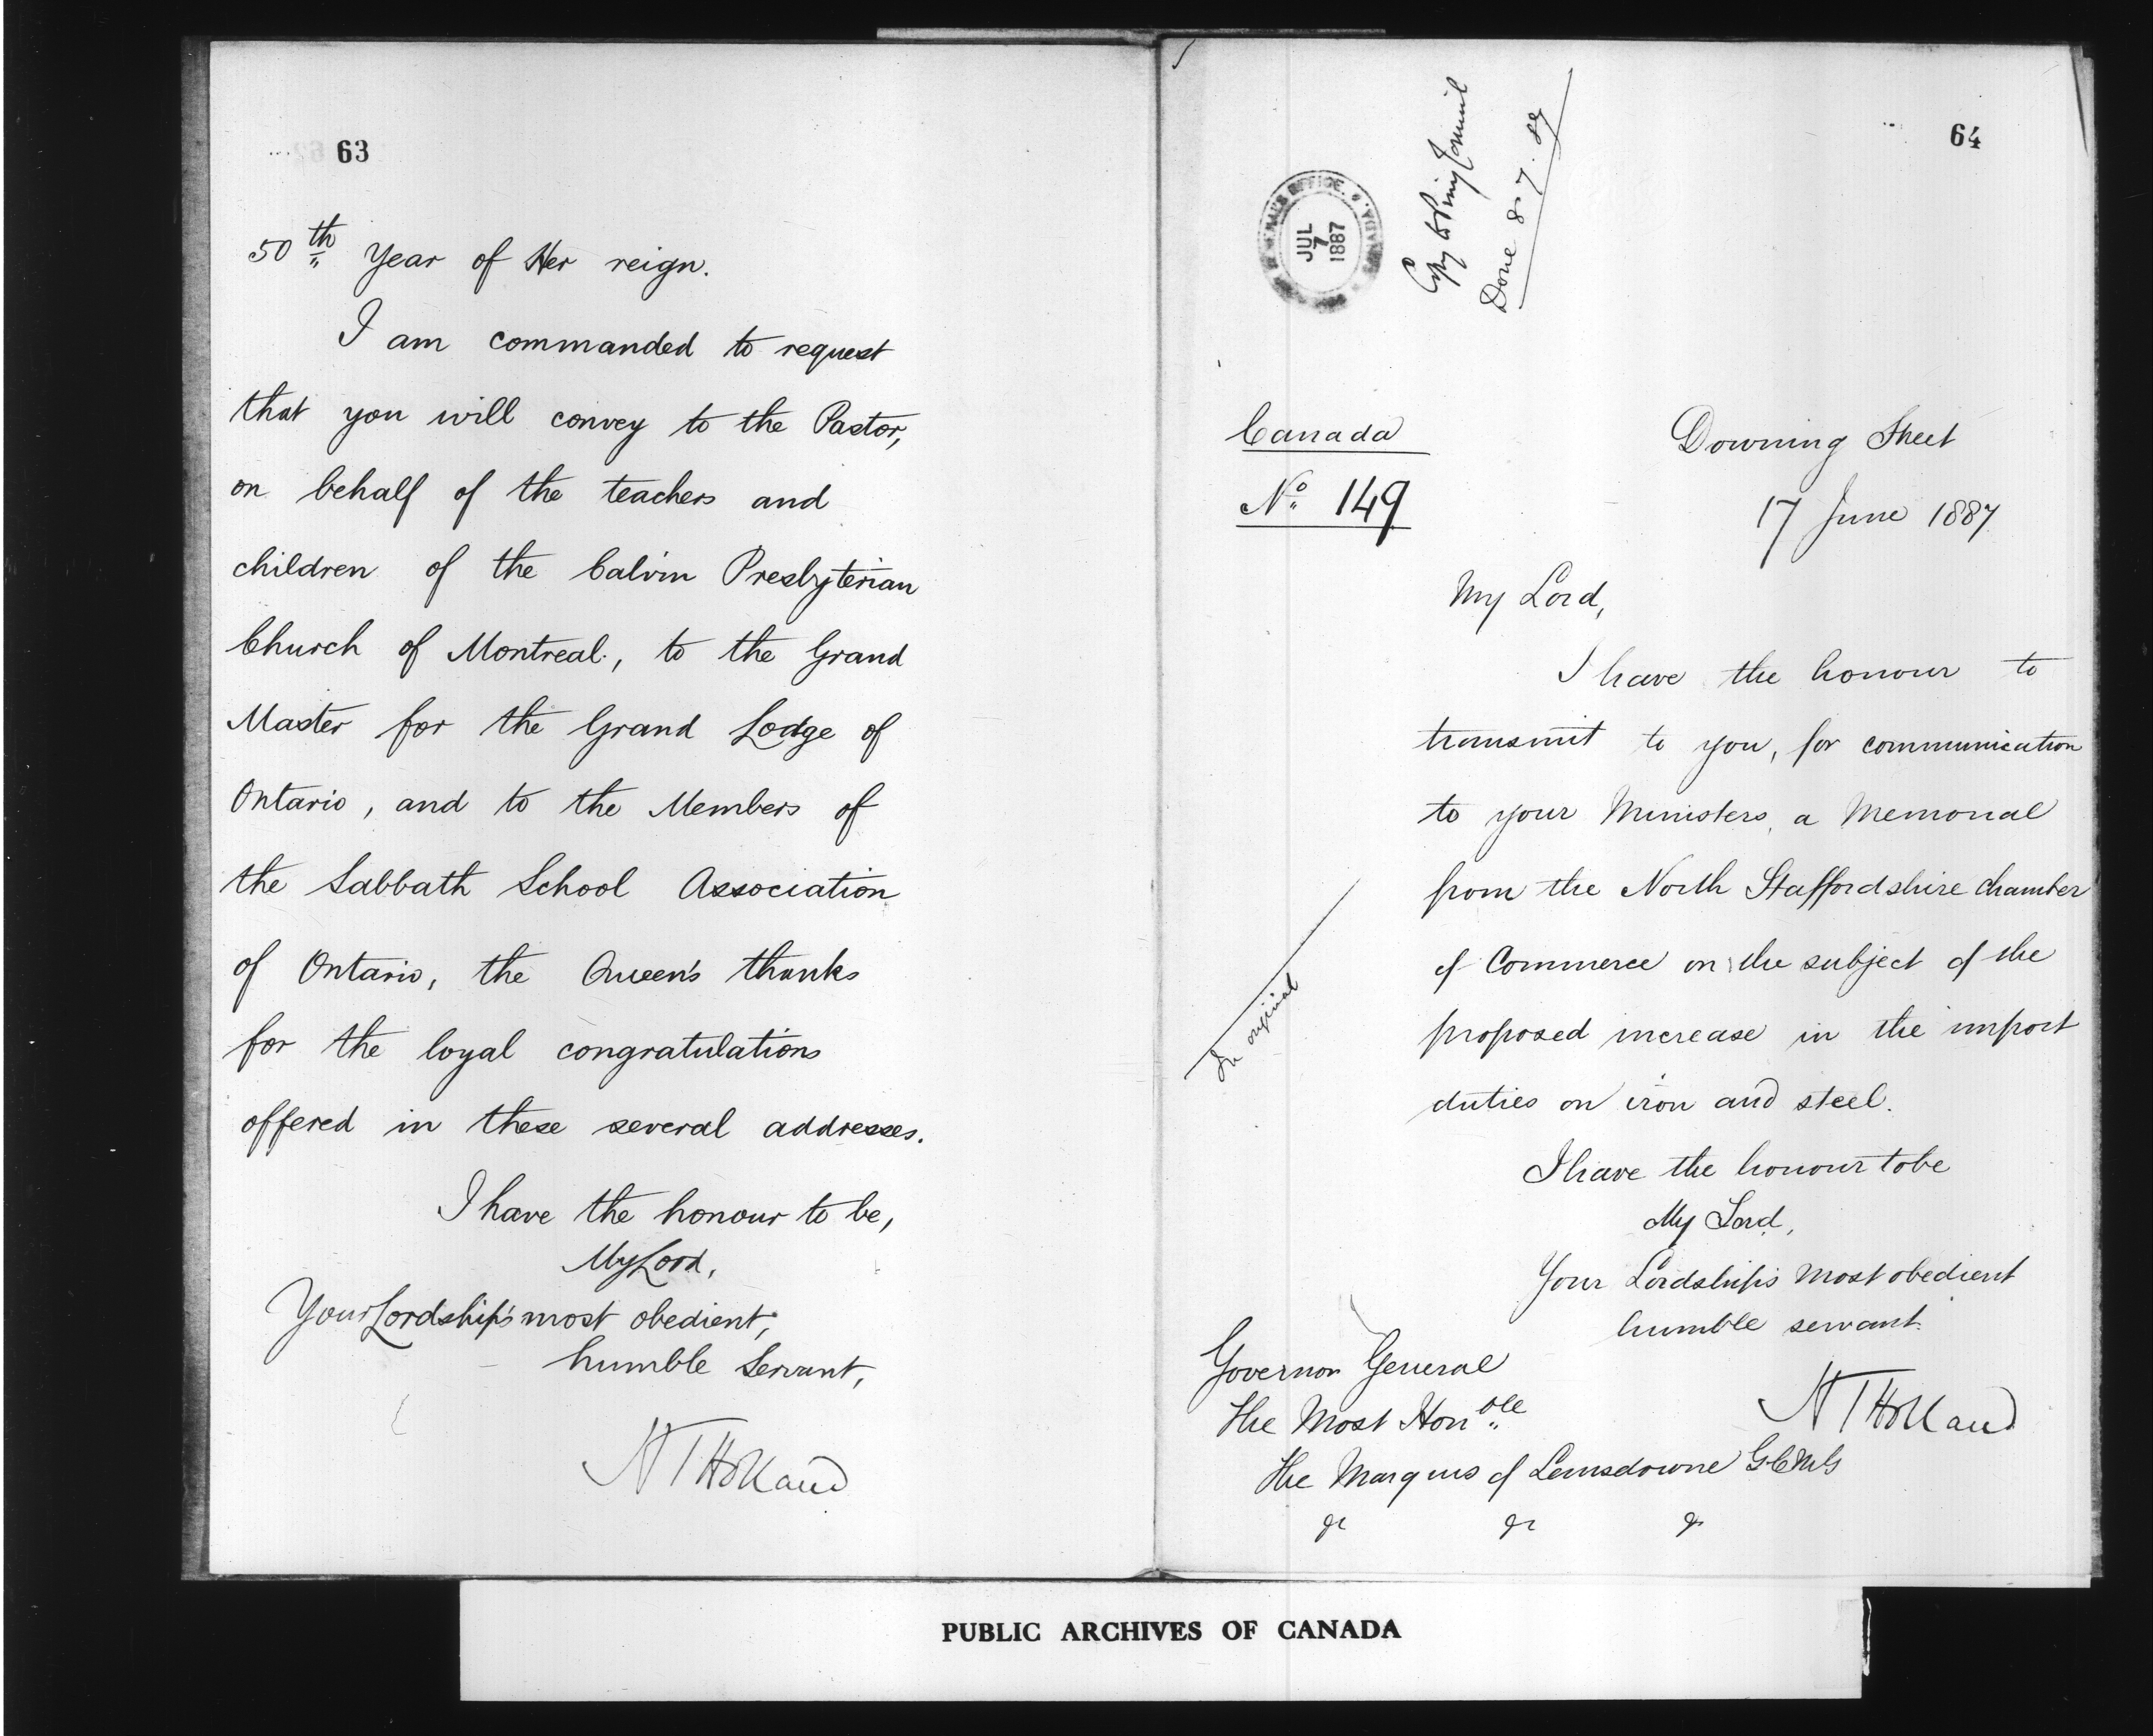 63
50th Year of Her reign.
I am commanded to request
that you will convey to the Pastor,
on behalf of the teachers and
children of the Calvin Presbyterian
Church of Montreal, to the Grand
Master for the Grand Lodge of
Ontario, and to the Members of
the Sabbath School Association
of Ontario, the Queen's thanks
for the loyal congratulations
offered in these several addresses.
I have the honour to be,
My Lord,
Your Lordship's most obedient,
humble Servant,
H T Holland
64
OFFICE
JUL
7
1887
Copy to Privy Council
Done 8.7.87
Canada
No 149
Downing Street
17 June 1887
My Lord,
I have the honour to
transmit to you, for communication
to your Ministers, a Memorial
from the North Staffordshire Chamber
of Commerce on the subject of the
proposed increase in the import
duties on iron and steel.
I have the honour to be
My Lord,
Your Lordship's most obedient
humble servant.
H T Holland
In original
Governor General
The Most Honble
The Marquis of Lansdowne GCMG
&c &c &c
PUBLIC ARCHIVES OF CANADA